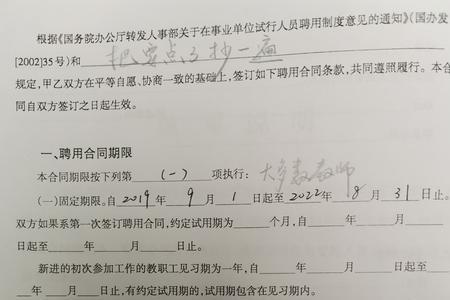 根据《国务院办公厅转发人事部关于在事业单位试行人员聘用制度意见的通知》(国办发
[2002]35号)和 把要点了抄一遍
规定,甲乙双方在平等自愿、协商一致的基础上,签订如下聘用合同条款,共同遵照履行。本合
同自双方签订之日起生效。
一、聘用合同期限
本合同期限按下列第 (一) 项执行: 大多数教师
(一)固定期限。自 2019 年 9 月 1 日起至 2022 年 8 月 31 日止。
双方如果系第一次签订聘用合同,约定试用期为____个月,自____年____月____
日起至____年____月____日止。
新进的初次参加工作的教职工见习期为一年,自____年____月____日起至
____年____月____日止,有约定试用期的,试用期包含在见习期内。